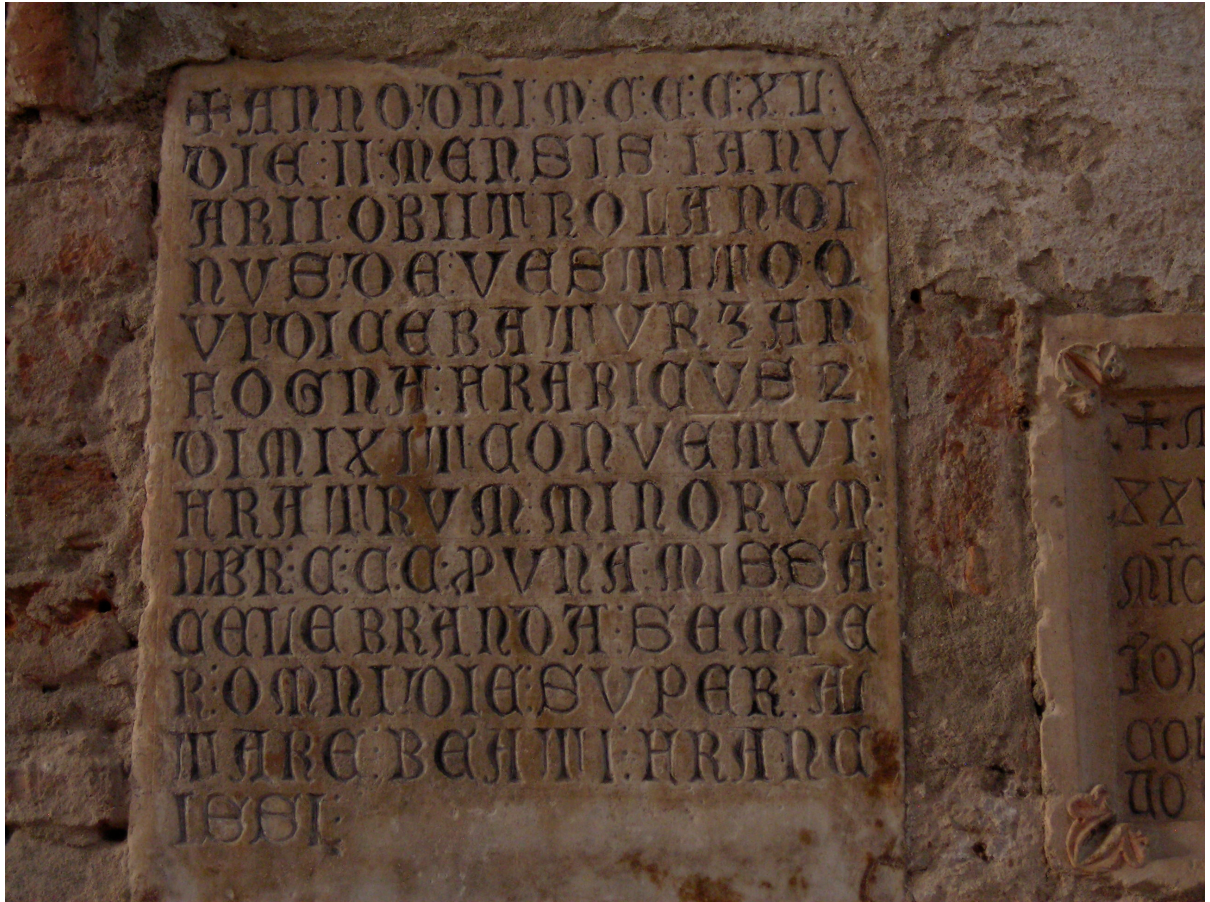 ✠ANNO:DN̄I:M:C:C:C:XL:
DIE:II:MENSIS:IANV
ARII:OBIIT:ROLANDI
NVS:DE:VESTITO:Q
VI:DICEBATVR ZAN
FOGNA:ARABICVS 2
DIMIXIT:CONVETVI:
FRATRVM:MINORUM:
LBR:C:C:C:PVNA:MISSA:
CELEBRANDA:SEMPE
R:OMNI:DIE:SVPER:AL
TARE:BEATI:FRANC
ISSI:
.✠.
XX